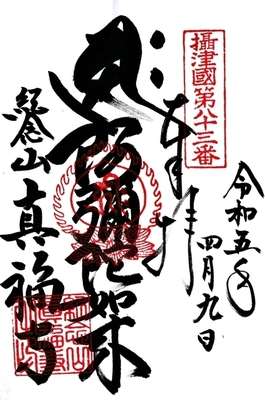 攝津國第八十三番
奉拝
令和五年
四月九日
阿弥陀如来
経念山
真福寺